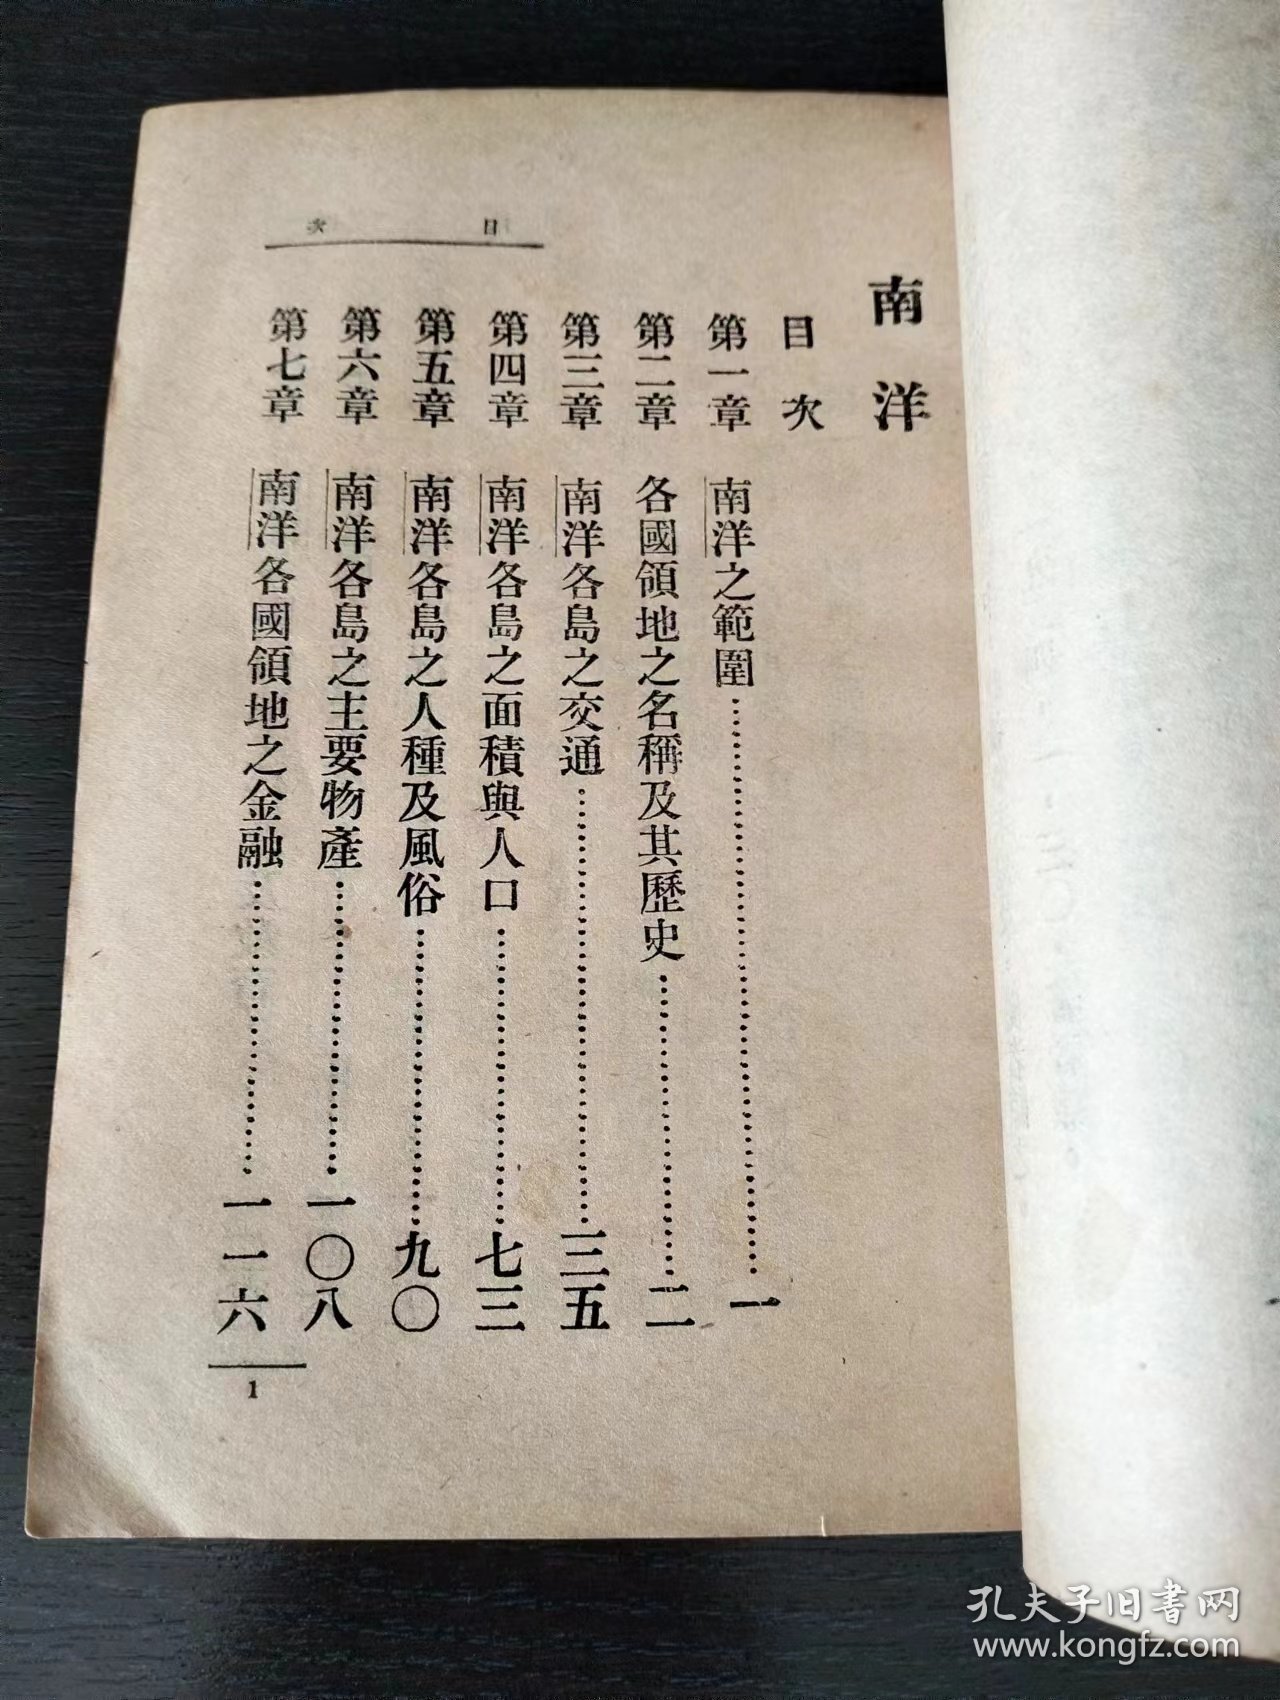 目次
南洋
目次
第一章 南洋之範圍……一
第二章 各國領地之名稱及其歷史……二
第三章 南洋各島之交通……三五
第四章 南洋各島之面積與人口……七三
第五章 南洋各島之人種及風俗……九〇
第六章 南洋各島之主要物產……一〇八
第七章 南洋各國領地之金融……一一六
1
孔夫子旧書网
www.kongfz.com